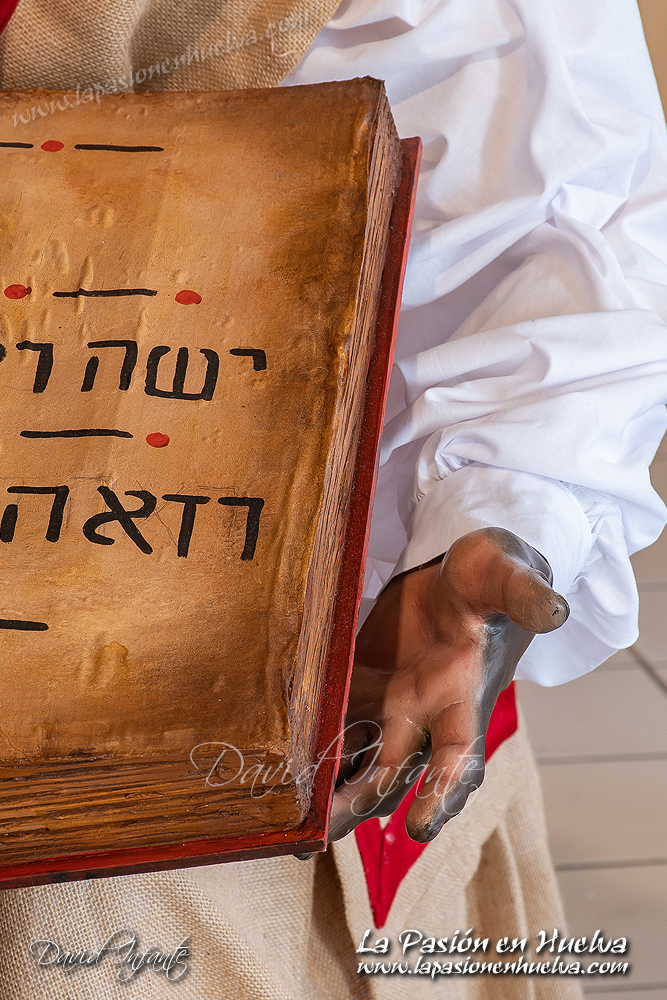 www.lapasionenhuelva.com
ישה ר
רזאה
David Infante
David Infante
La Pasión en Huelva
www.lapasionenhuelva.com